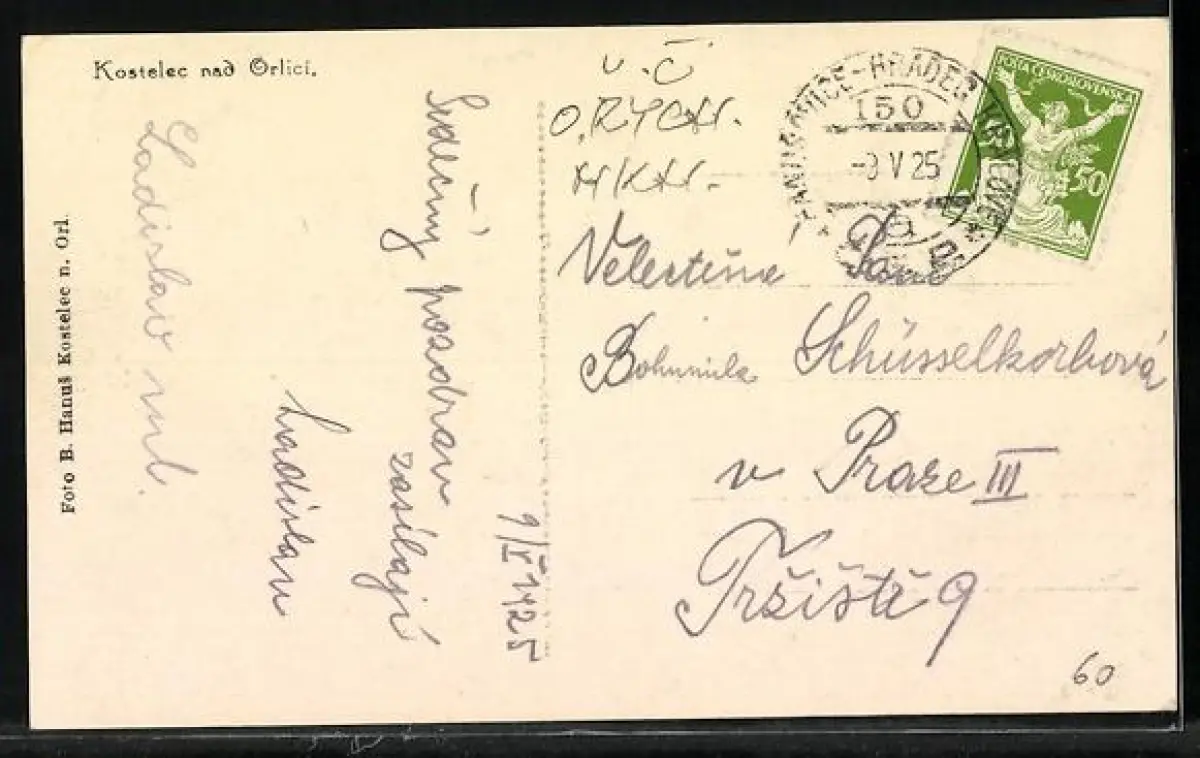 Kostelec nad Orlicí.
Foto B. Hanuš Kostelec n. Orl.
Srdečný pozdrav
zasílají
Ladislav
Ladislav ml.
9/V 1925
v.č.
O, RYCH.
H/KH.
HANUŠOVICE-HRADEC KRÁLOVÉ
150
-8 V 25
POŠTA ČESKOSLOVENSKÁ
50
Velectěná Paní
Bohumila Schüsselkorbová
v Praze III
Tržiště 9
60